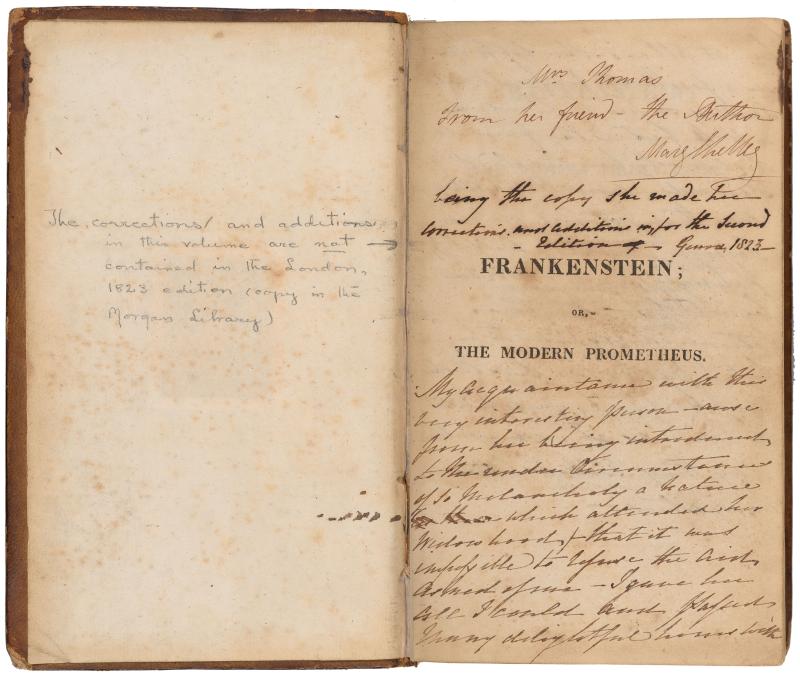 The corrections and additions
in this volume are not →
contained in the London,
1823 edition (copy in the
Morgan Library)
Mrs Thomas
From her friend – the Author
Mary Shelley
being the copy she made the
corrections, and additions in, for the Second
Edition of – Genoa, 1823 –
FRANKENSTEIN;
OR,
THE MODERN PROMETHEUS.
My acquaintance with this
very interesting person – arose
from her being introduced
to me under Circumstances
of so Melancholy a Nature
which attended her
Widowhood, & that it was
impossible to refuse the aid,
asked of me – I gave her
all I could and passed
many delightful hours with